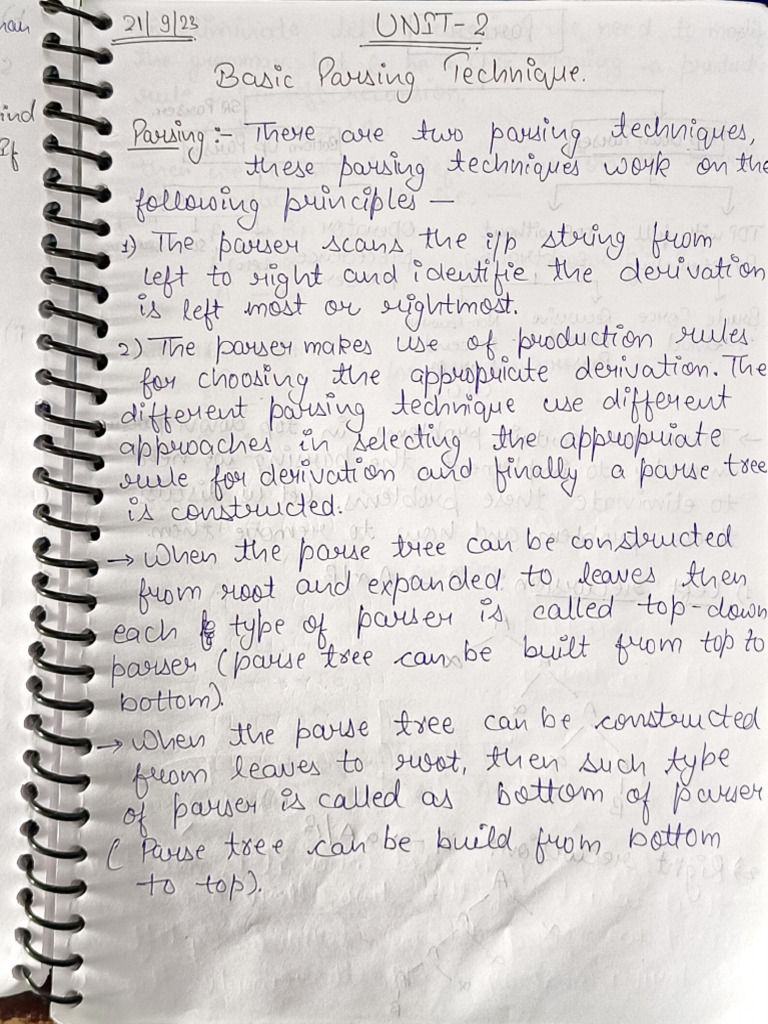 han
ind
If
21/9/23
UNIT-2
Basic Parsing Technique.
Parsing :- There are two parsing techniques,
these parsing techniques work on the
following principles —
1) The parser scans the i/p string from
left to right and identifie the derivation
is left most or rightmost.
2) The parser makes use of production rules
for choosing the appropriate derivation. The
different parsing technique use different
approaches in selecting the appropriate
rule for derivation and finally a parse tree
is constructed.
→ When the parse tree can be constructed
from root and expanded to leaves then
each type of parser is called top-down
parser (parse tree can be built from top to
bottom).
→ When the parse tree can be constructed
from leaves to root, then such type
of parser is called as bottom of parser
( Parse tree can be build from bottom
to top).